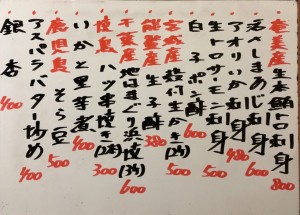 奄美産生本鮪トロ刺身 800
活〆しまあじ刺身 600
アオリいか刺身 480
生トロサーモン刺身 500
白子ポン酢 500
宮城産殻付生かき(2ケ) 500
能登産生子酢 380
千葉産地はまぐり浜焼(3ケ) 600
焼鳥ハツ串焼き(2本) 300
いかと里芋煮 400
鹿児島そら豆 500
アスパラバター炒め 400
銀杏 400